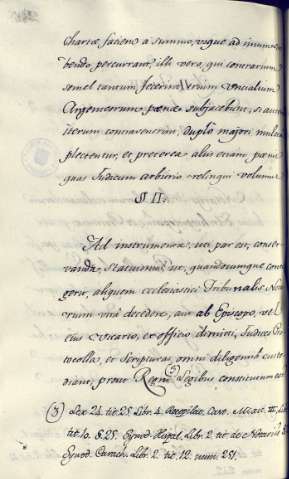 chartæ faciem a summo, usque ad imum
bendo percurrant; illi vero, qui contrarium
semel tantum fecerint, trium Uncialium
Argenteorum pœnæ subjacebunt; si autem
iterum contravenerint, duplo majori mulcta
plectentur, et præterea aliis etiam pœnis
quas Judicum arbitrio relinqui volumus
§ II.
Ad instrumenta, uti par est, conser-
vanda, statuimus, ut, quandocumque conti-
gerit, aliquem ecclesiastici Tribunalis Nota-
rium vita decedere, aut ab Episcopo, vel
ejus Vicario, ex officio dimitti, Judices Pro-
tocolla, et Scripturas omni diligentia custo-
diant, prout Regni (3) Legibus constitutum est
(3) Lex 24. tit. 25. Libr. 4. Recopilac. Castr.
tit. 10. §. 25. Synod. Hispal. Libr. 2. tit. de Notariis §
Synod. Canar. Libr. 2. tit. 12. num. 251.